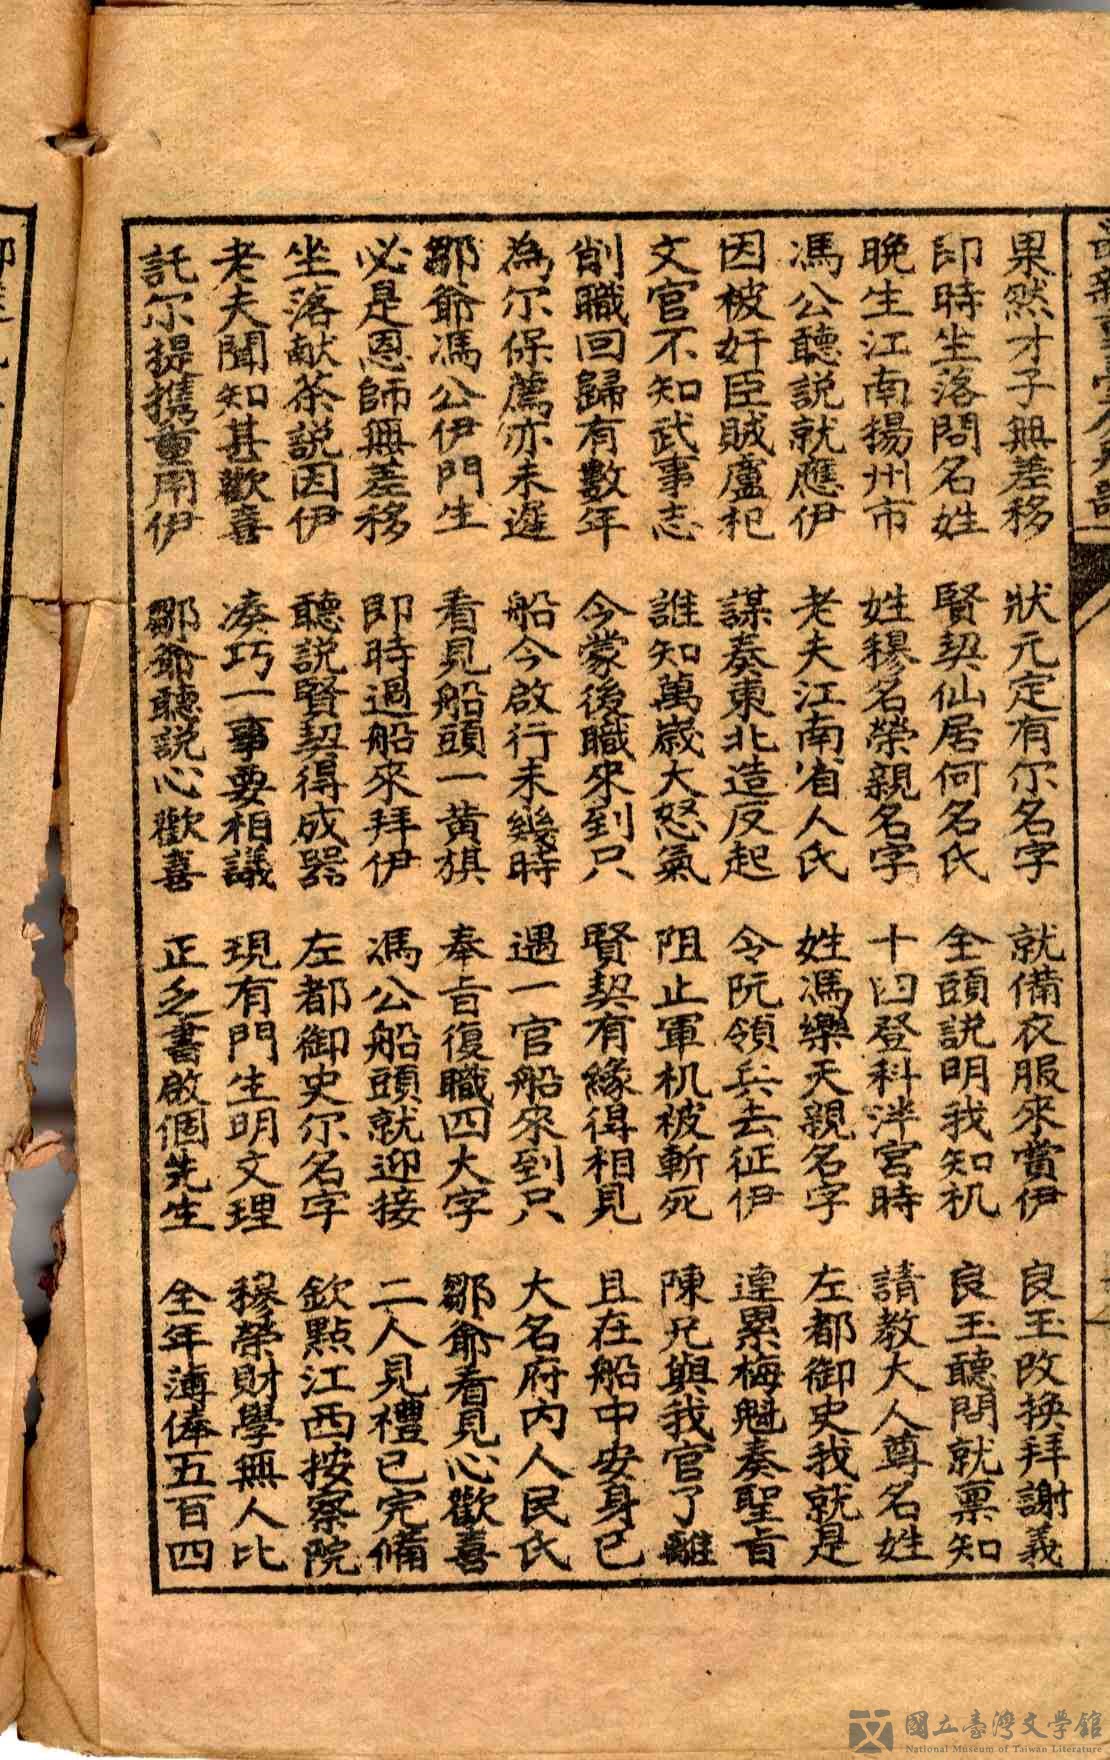 果然才子無差移 狀元定有尔名字 就備衣服來賞伊 良玉改換拜謝義
即時坐落問名姓 賢契仙居何名氏 全頭說明我知机 良玉聽問就稟知
晚生江南揚州市 姓穆名榮親名字 十四登科泮宮時 請教大人尊名姓
馮公聽說就應伊 老夫江南省人氏 姓馮樂天親名字 左都御史我就是
因被奸臣賊盧杞 謀奏東北造反起 令阮領兵去征伊 連累梅魁奏聖旨
文官不知武事志 誰知萬歲大怒氣 阻止軍机被斬死 陳兄與我官了離
削職回歸有數年 今蒙後職來到只 賢契有緣得相見 且在船中安身已
為尔保薦亦未遲 船今啟行未幾時 遇一官船來到只 大名府內人民氏
鄒爺馮公伊門生 看見船頭一黃旗 奉旨復職四大字 鄒爺看見心歡喜
必是恩師無差移 即時過船來拜伊 馮公船頭就迎接 二人見禮已完備
坐落献茶說因伊 聽說賢契得成器 左都御史尔名字 欽點江西按察院
老夫聞知甚歡喜 湊巧一事要相議 現有門生明文理 穆榮財學無人比
託尔提携重用伊 鄒爺聽說心歡喜 正乏書啟個先生 全年薄俸五百四
國立臺灣文學館
National Museum of Taiwan Literature